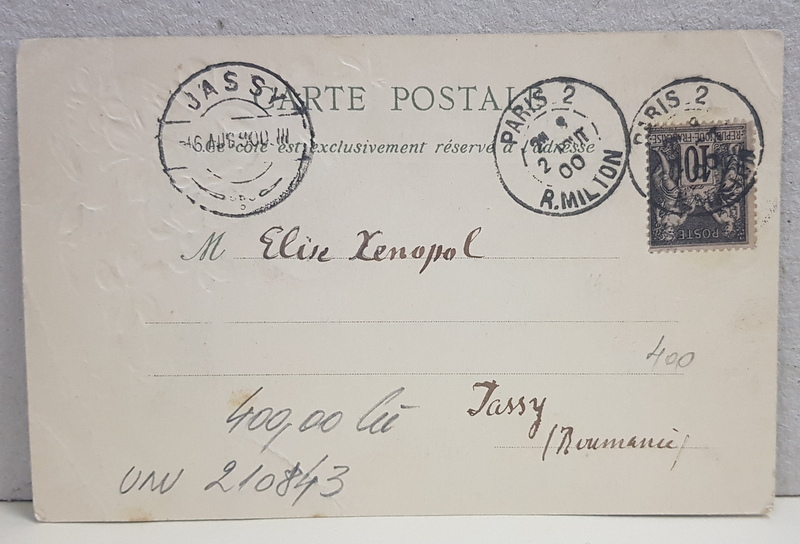 JASSY
6 AUG 900
CARTE POSTALE
Ce côté est exclusivement réservé à l'adresse
PARIS 2
2 AOUT
00
R. MILTON
PARIS 2
REPUBLIQUE FRANÇAISE
10
POSTES
M Elise Xenopol
400
Jassy
(Roumanie)
400,00 lei
210843